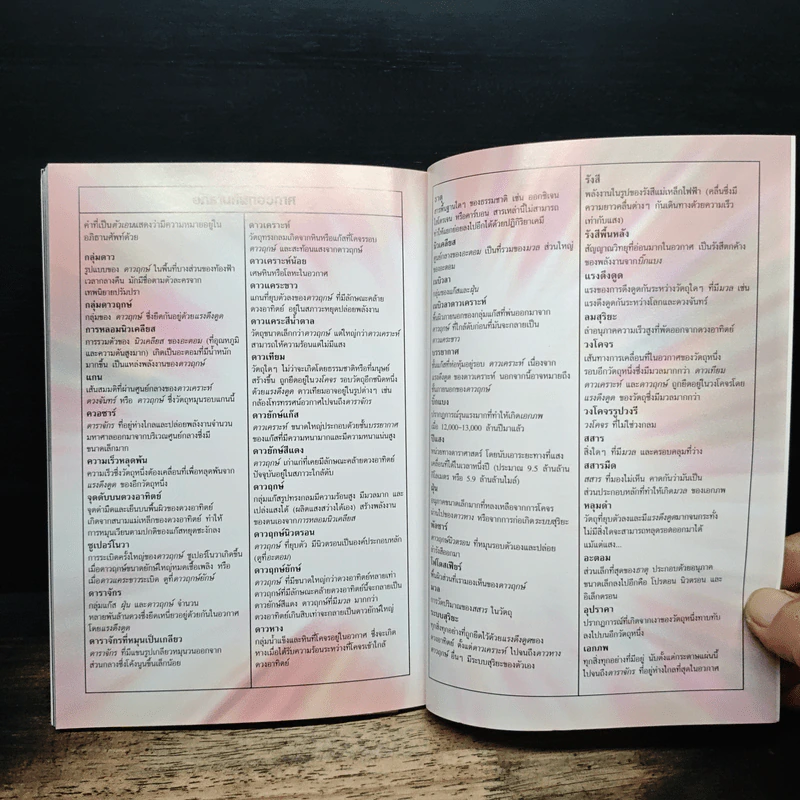 คำที่เป็นตัวเอนแสดงว่ามีความหมายอยู่ใน
อภิธานศัพท์ด้วย
กลุ่มดาว
รูปแบบของ ดาวฤกษ์ ในพื้นที่บางส่วนของท้องฟ้า
เวลากลางคืน มักมีชื่อตามตัวละครจาก
เทพนิยายปรัมปรา
กลุ่มดาวฤกษ์
กลุ่มของ ดาวฤกษ์ ซึ่งยึดกันอยู่ด้วยแรงดึงดูด
การหลอมนิวเคลียส
การรวมตัวของ นิวเคลียส ของอะตอม (ที่อุณหภูมิ
และความดันสูงมาก) เกิดเป็นอะตอมที่มีน้ำหนัก
มากขึ้น เป็นแหล่งพลังงานของดาวฤกษ์
แกน
เส้นสมมติที่ผ่านศูนย์กลางของดาวเคราะห์
ดวงจันทร์ หรือ ดาวฤกษ์ ซึ่งวัตถุหมุนรอบแกนนี้
ควอซาร์
ดาราจักร ที่อยู่ห่างไกลและปล่อยพลังงานจำนวน
มหาศาลออกมาจากบริเวณศูนย์กลางซึ่งมี
ขนาดเล็กมาก
ความเร็วหลุดพ้น
ความเร็วซึ่งวัตถุหนึ่งต้องเคลื่อนที่เพื่อหลุดพ้นจาก
แรงดึงดูด ของอีกวัตถุหนึ่ง
จุดดับบนดวงอาทิตย์
จุดดำมืดและเย็นบนพื้นผิวของดวงอาทิตย์
เกิดจากสนามแม่เหล็กของดวงอาทิตย์ ทำให้
การหมุนเวียนตามปกติของแก๊สหยุดชะงักลง
ซูเปอร์โนวา
การระเบิดครั้งใหญ่ของดาวฤกษ์ ซูเปอร์โนวาเกิดขึ้น
เมื่อดาวฤกษ์ขนาดยักษ์ใหญ่หมดเชื้อเพลิง หรือ
เมื่อดาวแคระขาวระเบิด ดูที่ดาวฤกษ์ยักษ์
ดาราจักร
กลุ่มแก๊ส ฝุ่น และดาวฤกษ์ จำนวน
หลายพันล้านดวงซึ่งยึดเหนี่ยวอยู่ด้วยกันในอวกาศ
โดยแรงดึงดูด
ดาราจักรที่หมุนเป็นเกลียว
ดาราจักร ที่มีแขนรูปเกลียวหมุนวนออกจาก
ส่วนกลางซึ่งโค้งนูนขึ้นเล็กน้อย
ดาวเคราะห์
วัตถุทรงกลมเกิดจากหินหรือแก๊สที่โคจรรอบ
ดาวฤกษ์ และสะท้อนแสงจากดาวฤกษ์
ดาวเคราะห์น้อย
เศษหินหรือโลหะในอวกาศ
ดาวแคระขาว
แกนที่ยุบตัวลงของดาวฤกษ์ ที่มีลักษณะคล้าย
ดวงอาทิตย์ อยู่ในสภาวะหยุดปล่อยพลังงาน
ดาวแคระสีน้ำตาล
วัตถุขนาดเล็กกว่าดาวฤกษ์ แต่ใหญ่กว่าดาวเคราะห์
สามารถให้ความร้อนแต่ไม่มีแสง
ดาวเทียม
วัตถุใดๆ ไม่ว่าจะเกิดโดยธรรมชาติหรือที่มนุษย์
สร้างขึ้น ถูกยึดอยู่ในวงโคจร รอบวัตถุอีกชนิดหนึ่ง
ด้วยแรงดึงดูด ดาวเทียมอาจอยู่ในรูปต่างๆ เช่น
กล้องโทรทรรศน์อวกาศไปจนถึงดาราจักร
ดาวยักษ์แก๊ส
ดาวเคราะห์ ขนาดใหญ่ประกอบด้วยชั้นบรรยากาศ
ของแก๊สที่มีความหนามากและมีความหนาแน่นสูง
ดาวยักษ์สีแดง
ดาวฤกษ์ เก่าแก่ที่เคยมีลักษณะคล้ายดวงอาทิตย์
ปัจจุบันอยู่ในสภาวะใกล้ดับ
ดาวฤกษ์
กลุ่มแก๊สรูปทรงกลมมีความร้อนสูง มีมวลมาก และ
เปล่งแสงได้ (ผลิตแสงสว่างได้เอง) สร้างพลังงาน
ของตนเองจากการหลอมนิวเคลียส
ดาวฤกษ์นิวตรอน
ดาวฤกษ์ ที่ยุบตัว มีนิวตรอนเป็นองค์ประกอบหลัก
(ดูที่อะตอม)
ดาวฤกษ์ยักษ์
ดาวฤกษ์ ที่มีขนาดใหญ่กว่าดวงอาทิตย์หลายเท่า
ดาวฤกษ์ที่มีลักษณะคล้ายดวงอาทิตย์นี้จะกลายเป็น
ดาวยักษ์สีแดง ดาวฤกษ์ที่มีมวล มากกว่า
ดวงอาทิตย์เกินสิบเท่าจะกลายเป็นดาวยักษ์ใหญ่
ดาวหาง
กลุ่มน้ำแข็งและหินที่โคจรอยู่ในอวกาศ ซึ่งจะเกิด
หางเมื่อได้รับความร้อนระหว่างที่โคจรเข้าใกล้
ดวงอาทิตย์
ธาตุ
ใดๆ ของธรรมชาติ เช่น ออกซิเจน
หรือคาร์บอน สารเหล่านี้ไม่สามารถ
ลงไปอีกได้ด้วยปฏิกิริยาเคมี
นิวเคลียส
ศูนย์กลางของอะตอม เป็นที่รวมของมวล ส่วนใหญ่
เนบิวลา
กลุ่มเมฆของแก๊สและฝุ่น
เนบิวลาดาวเคราะห์
ชั้นผิวภายนอกของกลุ่มแก๊สที่พ่นออกมาจาก
ดาวฤกษ์ ที่ใกล้ดับก่อนที่มันจะกลายเป็น
ดาวแคระขาว
บรรยากาศ
ชั้นแก๊สที่ห่อหุ้มอยู่รอบ ดาวเคราะห์ เนื่องจาก
แรงดึงดูด ของดาวเคราะห์ นอกจากนี้อาจหมายถึง
ชั้นภายนอกของดาวฤกษ์
บิ๊กแบง
ปรากฏการณ์รุนแรงที่ทำให้เกิดเอกภพ
เมื่อ 12,000–13,000 ล้านปีมาแล้ว
ปีแสง
หน่วยทางดาราศาสตร์ โดยนับเอาระยะทางที่แสง
เคลื่อนที่ได้ในเวลาหนึ่งปี (ประมาณ 9.5 ล้านล้าน
กิโลเมตร หรือ 5.9 ล้านล้านไมล์)
ฝุ่น
อนุภาคขนาดเล็กมากที่หลงเหลือจากการโคจร
ผ่านไปของดาวหาง หรือจากการก่อเกิดระบบสุริยะ
พัลซาร์
ดาวฤกษ์นิวตรอน ที่หมุนรอบตัวเองและปล่อย
รังสีออกมา
โฟโตสเฟียร์
พื้นผิวส่วนที่เรามองเห็นของดาวฤกษ์
มวล
การวัดปริมาณของสสาร ในวัตถุ
ระบบสุริยะ
ทุกสิ่งทุกอย่างที่ถูกยึดไว้ด้วยแรงดึงดูดของ
ดวงอาทิตย์ ตั้งแต่ดาวเคราะห์ ไปจนถึงดาวหาง
ดาวฤกษ์ อื่นๆ มีระบบสุริยะของตัวเอง
รังสี
พลังงานในรูปของรังสีแม่เหล็กไฟฟ้า (คลื่นซึ่งมี
ความยาวคลื่นต่างๆ กันเดินทางด้วยความเร็ว
เท่ากับแสง)
รังสีพื้นหลัง
สัญญาณวิทยุที่อ่อนมากในอวกาศ เป็นรังสีตกค้าง
ของพลังงานจากบิ๊กแบง
แรงดึงดูด
แรงของการดึงดูดกันระหว่างวัตถุใดๆ ที่มีมวล เช่น
แรงดึงดูดกันระหว่างโลกและดวงจันทร์
ลมสุริยะ
ลำอนุภาคความเร็วสูงที่พัดออกจากดวงอาทิตย์
วงโคจร
เส้นทางการเคลื่อนที่ในอวกาศของวัตถุหนึ่ง
รอบอีกวัตถุหนึ่งซึ่งมีมวลมากกว่า ดาวเทียม
ดาวเคราะห์ และดาวฤกษ์ ถูกยึดอยู่ในวงโคจรโดย
แรงดึงดูด ของวัตถุซึ่งมีมวลมากกว่า
วงโคจรรูปวงรี
วงโคจร ที่ไม่ใช่วงกลม
สสาร
สิ่งใดๆ ที่มีมวล และครอบคลุมที่ว่าง
สสารมืด
สสาร ที่มองไม่เห็น คาดกันว่ามันเป็น
ส่วนประกอบหลักที่ทำให้เกิดมวล ของเอกภพ
หลุมดำ
วัตถุที่ยุบตัวลงและมีแรงดึงดูดมากจนกระทั่ง
ไม่มีสิ่งใดจะสามารถหลุดรอดออกมาได้
แม้แต่แสง...
อะตอม
ส่วนเล็กที่สุดของธาตุ ประกอบด้วยอนุภาค
ขนาดเล็กลงไปอีกคือ โปรตอน นิวตรอน และ
อิเล็กตรอน
อุปราคา
ปรากฏการณ์ที่เกิดจากเงาของวัตถุหนึ่งทาบทับ
ลงไปบนอีกวัตถุหนึ่ง
เอกภพ
ทุกสิ่งทุกอย่างที่มีอยู่ นับตั้งแต่กระดาษแผ่นนี้
ไปจนถึงดาราจักร ที่อยู่ห่างไกลที่สุดในอวกาศ